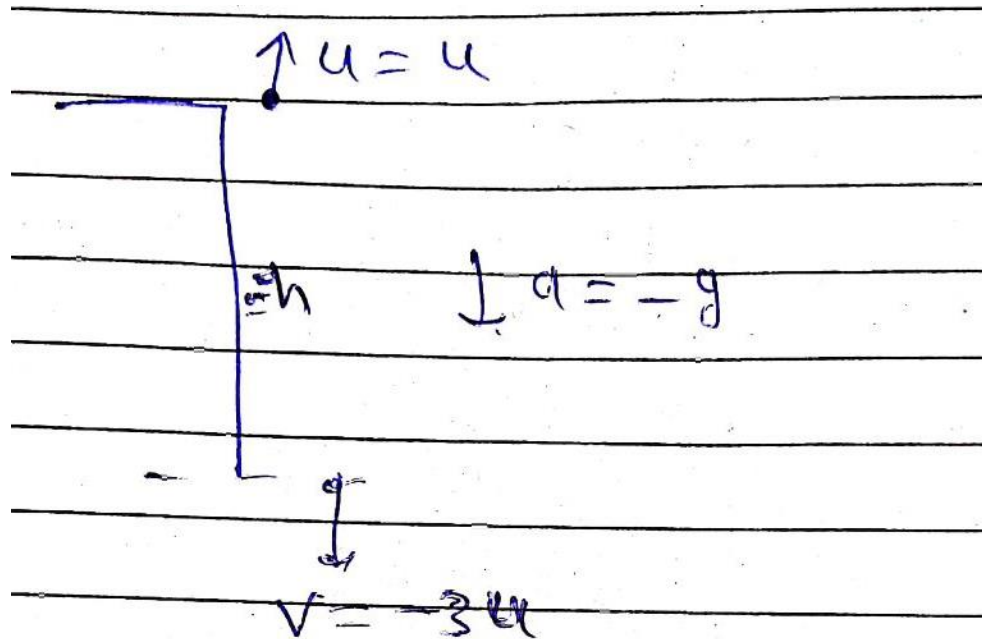 u = u
h
a = - g
v = - 3u